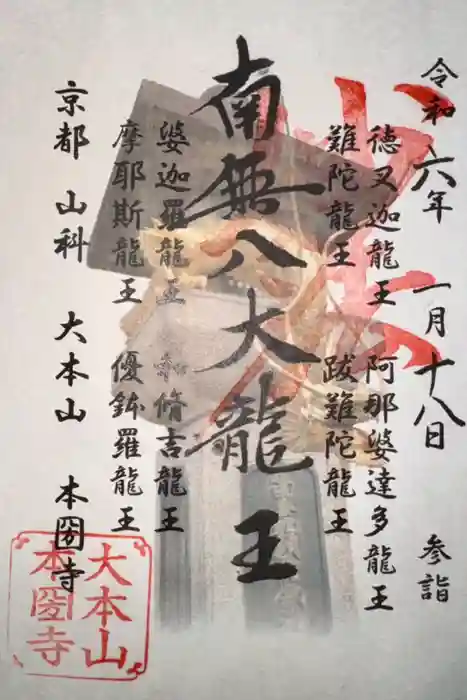 令和六年 一月十八日 参詣
徳叉迦龍王 阿那婆達多龍王
難陀龍王 跋難陀龍王
南無八大龍王
婆迦羅龍王 脩吉龍王
摩耶斯龍王 優鉢羅龍王
京都 山科 大本山 本圀寺
大本山
本圀寺